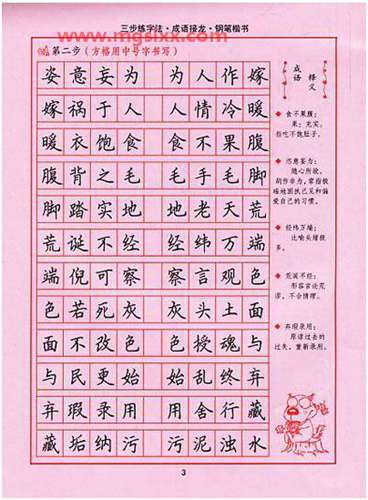 www.mgsixx.com
三步练字法·成语接龙·钢笔楷书
第二步（方格用中号字书写）
姿意妄为 为人作嫁
嫁祸于人 人情冷暖
暖衣饱食 食不果腹
腹背之毛 毛手毛脚
脚踏实地 地老天荒
荒诞不经 经纬万端
端倪可察 察言观色
色若死灰 灰头土面
面不改色 色授魂与
与民更始 始乱终弃
弃瑕录用 用舍行藏
藏垢纳污 污泥浊水
成语释义
食不果腹：
果：充实。
指吃不饱肚子。
恣意妄为：
随心所欲，
胡作非为，常指
固执己见和偏
爱自己的习惯。
经纬万端：
比喻头绪极
多。
荒诞不经：
形容言论荒
谬，不合情理。
弃瑕录用：
原谅过去的
过失，重新录用。
3